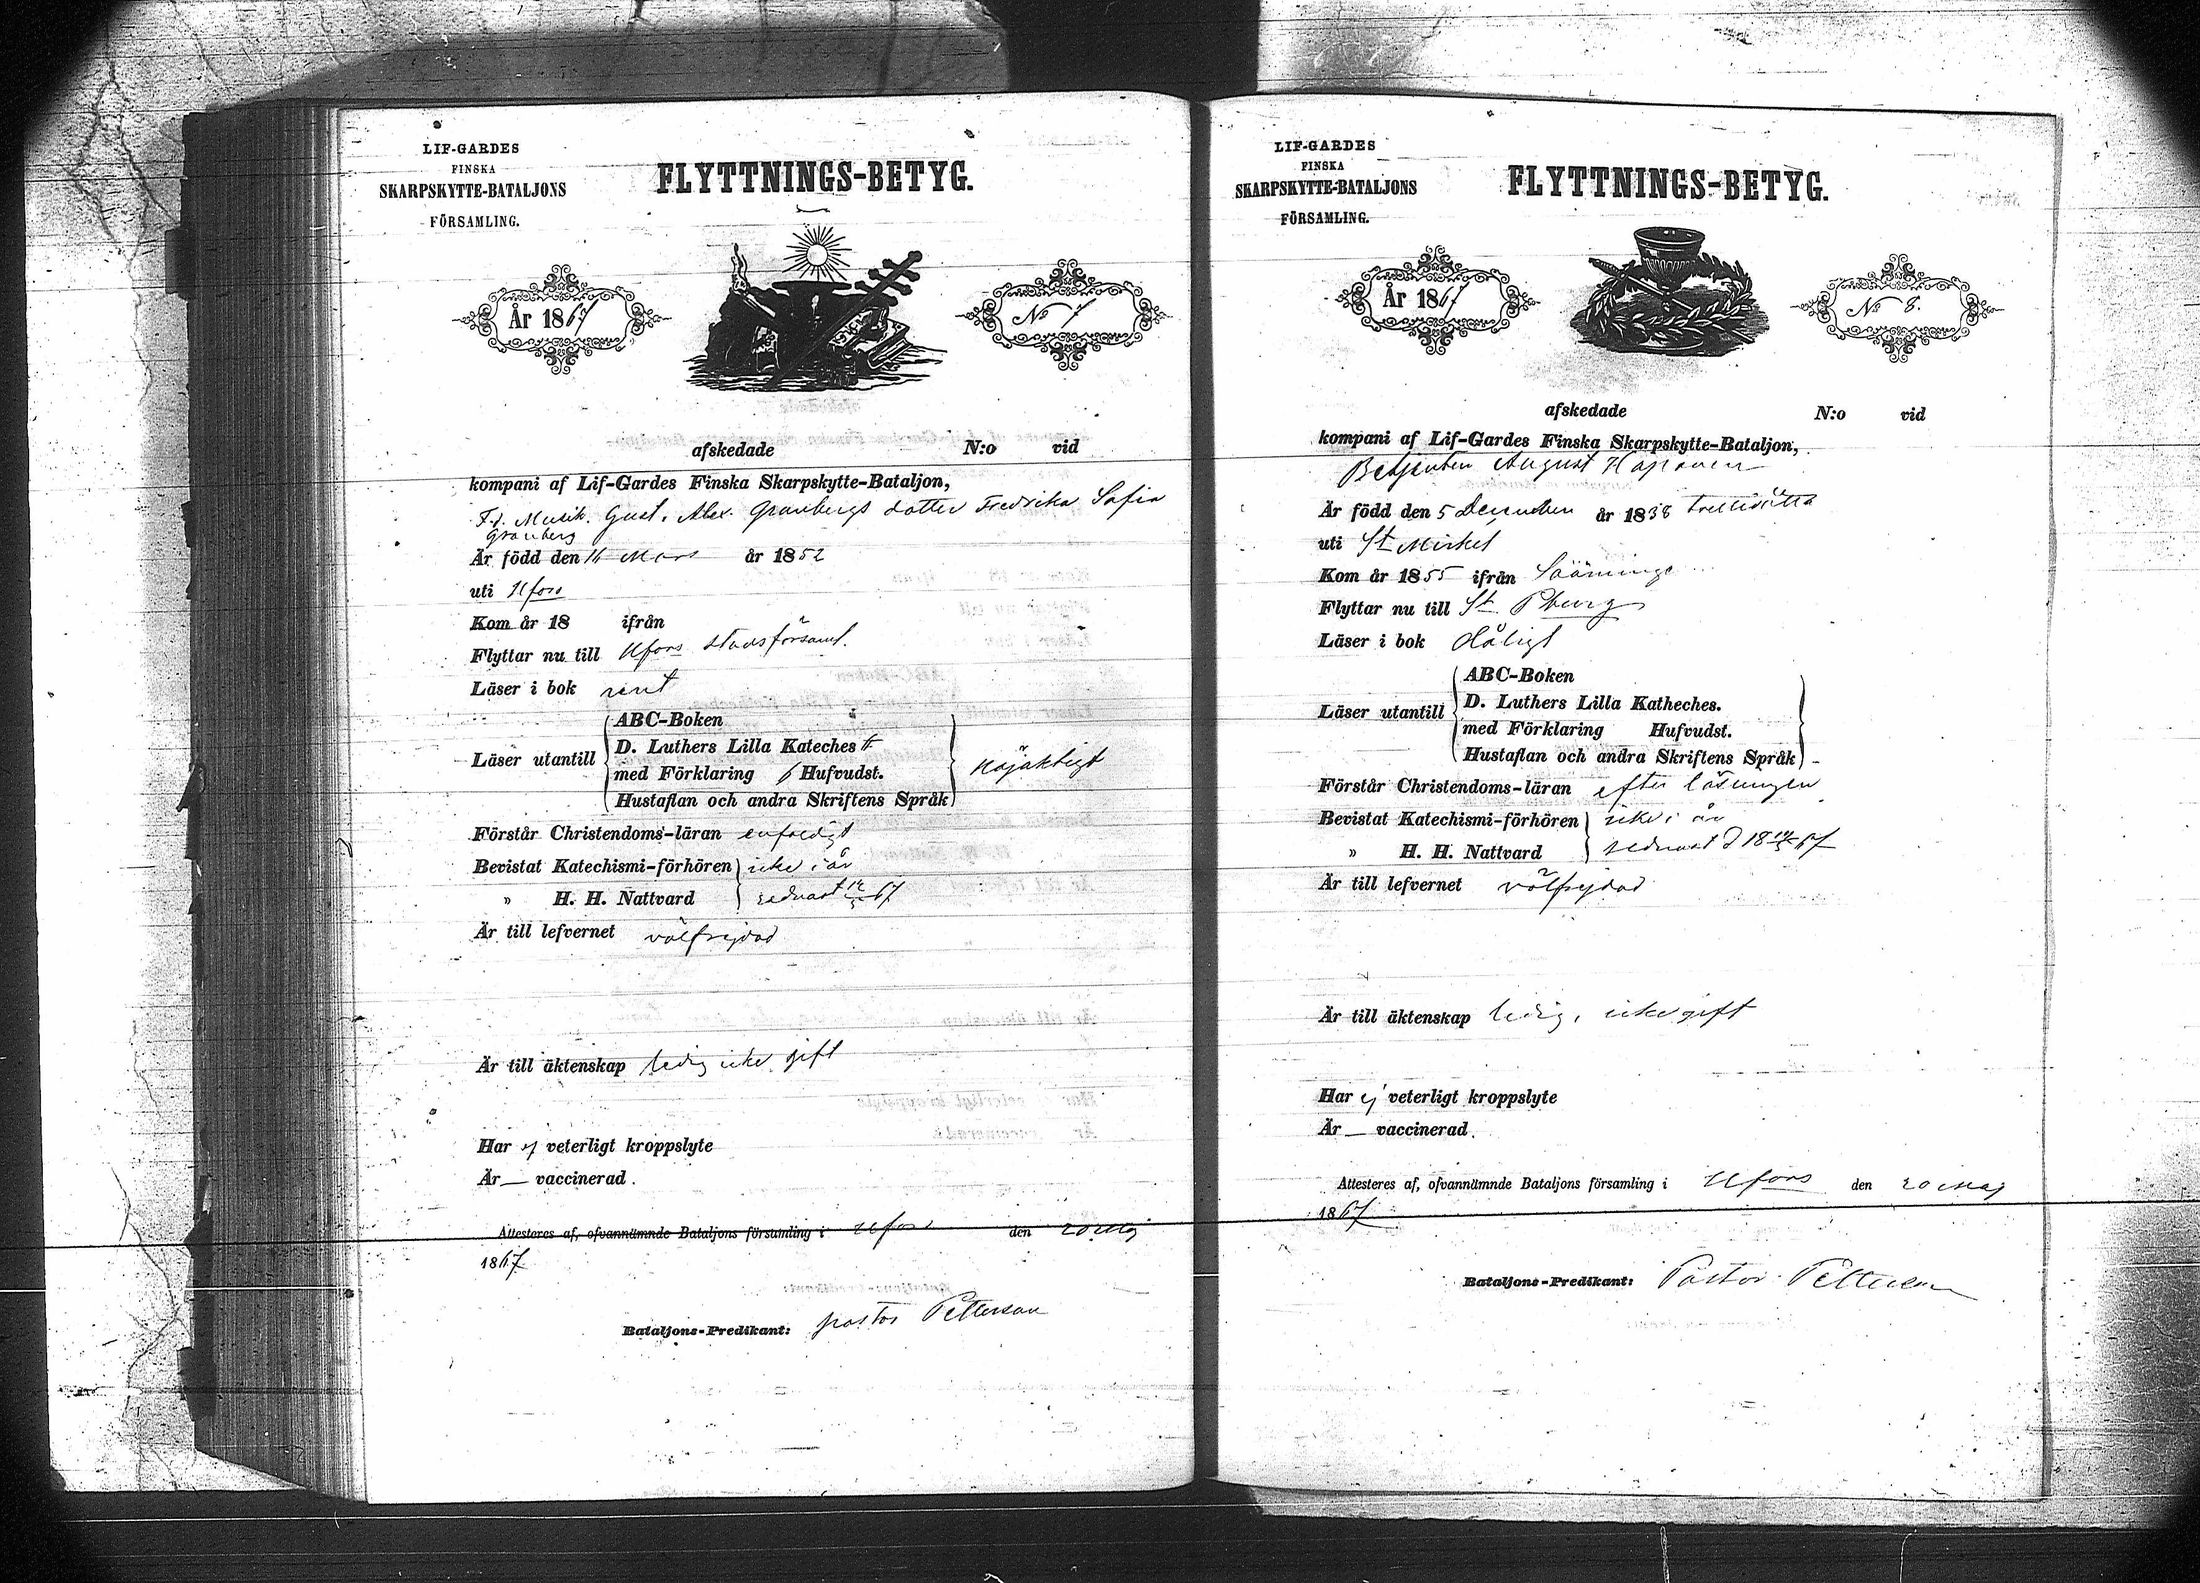 LIF-GARDES
FINSKA
SKARPSKYTTE-BATALJONS
FÖRSAMLING.
FLYTTNINGS-BETYG.
År 1867
No 7
afskedade N:o vid
kompani af Lif-Gardes Finska Skarpskytte-Bataljon,
F.d. Musik. Gust. Alex. Granbergs dotter Fredrika Sofia
Granberg
Är född den 16 Mars år 1852
uti Hfors
Kom år 18 ifrån
Flyttar nu till Hfors stadsförsaml.
Läser i bok rent
Läser utantill
ABC-Boken
D. Luthers Lilla Kateches
med Förklaring 6 Hufvudst.
Hustaflan och andra Skriftens Språk
nöjaktigt
Förstår Christendoms-läran enfaldigt
Bevistat Katechismi-förhören icke i år
" H. H. Nattvard sednast 12/5 67
Är till lefvernet välfrejdad
Är till äktenskap ledig icke gift
Har ej veterligt kroppslyte
Är — vaccinerad.
Attesteres af, ofvannämnde Bataljons församling i Hfors den 20 Maj
1867.
Bataljons-Predikant: pastor Petterson
LIF-GARDES
FINSKA
SKARPSKYTTE-BATALJONS
FÖRSAMLING.
FLYTTNINGS-BETYG.
År 1867
No 8.
afskedade N:o vid
kompani af Lif-Gardes Finska Skarpskytte-Bataljon,
Betjenten August Haponen
Är född den 5 December år 1838 trettioåtta
uti St Mickel
Kom år 1855 ifrån Sääminge
Flyttar nu till St Pburg
Läser i bok dåligt
Läser utantill
ABC-Boken
D. Luthers Lilla Katheches.
med Förklaring Hufvudst.
Hustaflan och andra Skriftens Språk –
Förstår Christendoms-läran efter läsningen
Bevistat Katechismi-förhören icke i år
" H. H. Nattvard sednast d 18 67
Är till lefvernet välfrejdad
Är till äktenskap ledig, icke gift
Har ej veterligt kroppslyte
Är — vaccinerad.
Attesteres af, ofvannämnde Bataljons församling i Hfors den 20 Maj
1867.
Bataljons-Predikant: Pastor Petterson